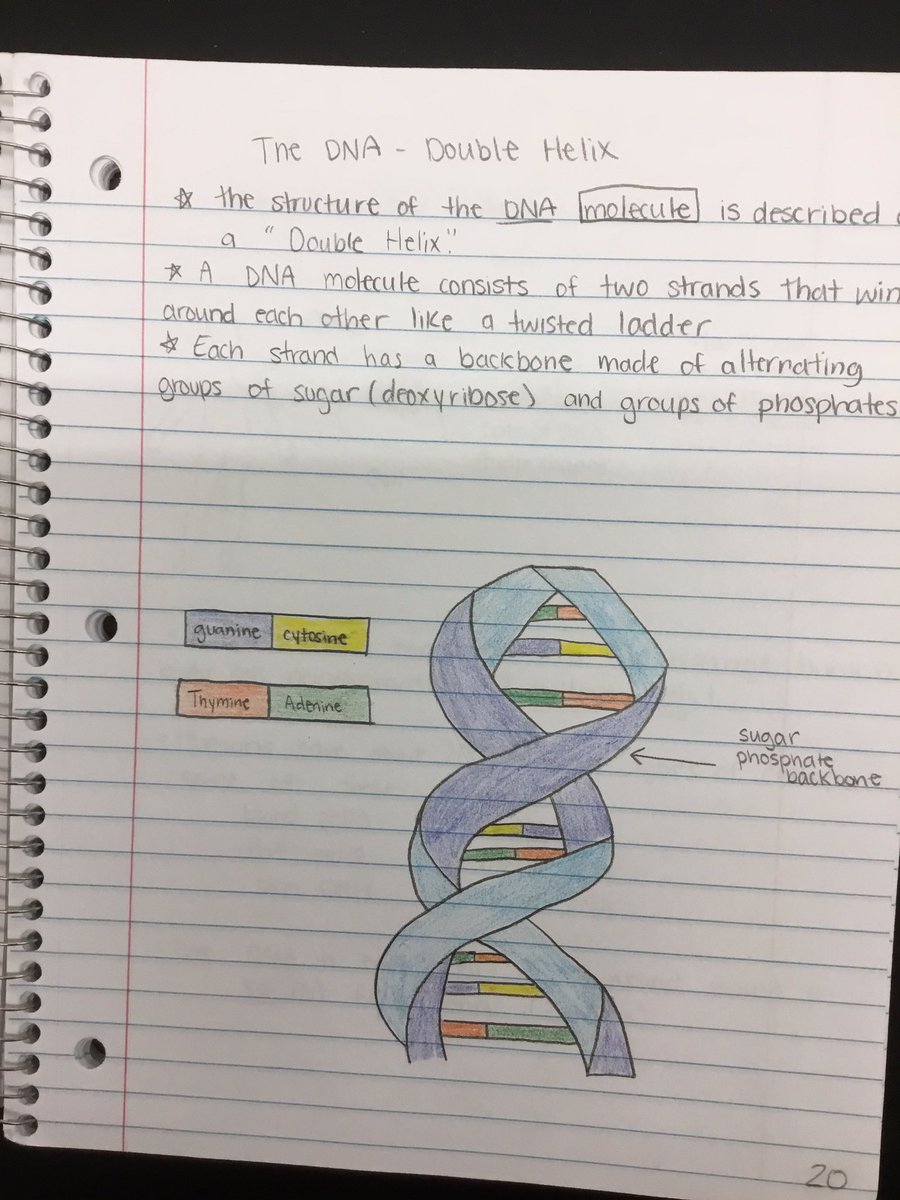 The DNA - Double Helix
☆ the structure of the DNA molecule is described
a "Double Helix."
☆ A DNA molecule consists of two strands that win
around each other like a twisted ladder
☆ Each strand has a backbone made of alternating
groups of sugar (deoxyribose) and groups of phosphates
guanine cytosine
Thymine Adenine
sugar
phosphate
backbone
20